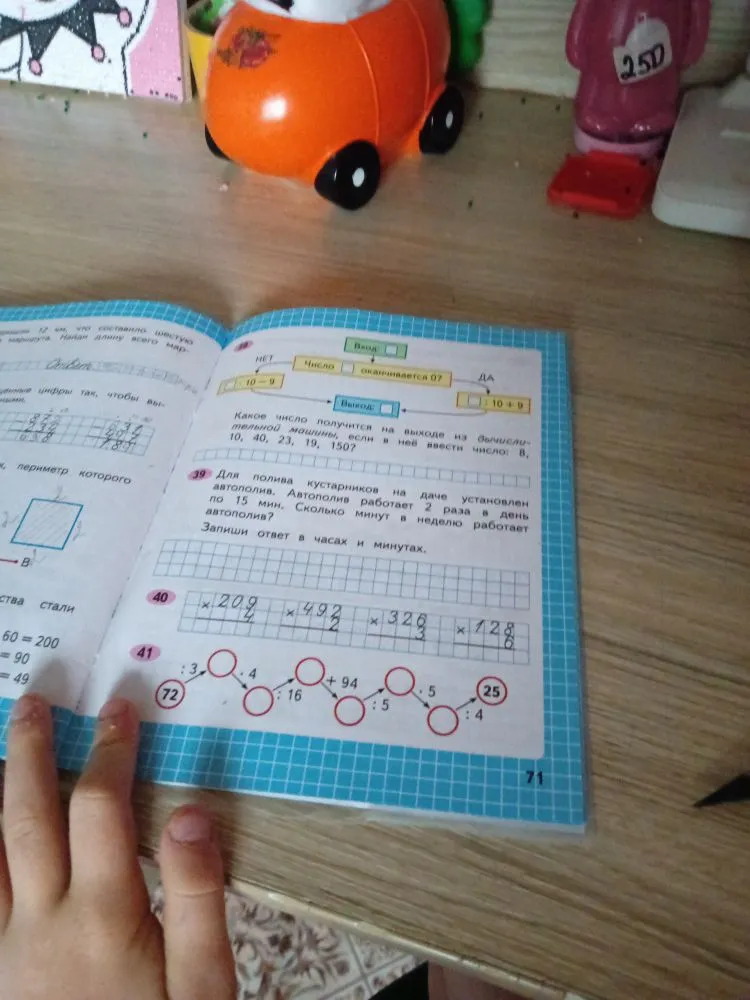 250
12 км, что составило шестую
маршрута. Найди длину всего мар-
Ответ
цифры так, чтобы вы-
периметр которого
B
ства стали
60 = 200
= 90
= 49
38
Вход:
НЕТ
Число оканчивается 0?
ДА
· 10 − 9
Выход:
: 10 + 9
Какое число получится на выходе из вычисли-
тельной машины, если в неё ввести число: 8,
10, 40, 23, 19, 150?
39 Для полива кустарников на даче установлен
автополив. Автополив работает 2 раза в день
по 15 мин. Сколько минут в неделю работает
автополив?
Запиши ответ в часах и минутах.
40
× 209 × 492 × 326 × 128
4 2 3 6
41
72 : 3 · 4 : 16 + 94 : 5 · 5 : 4 25
71